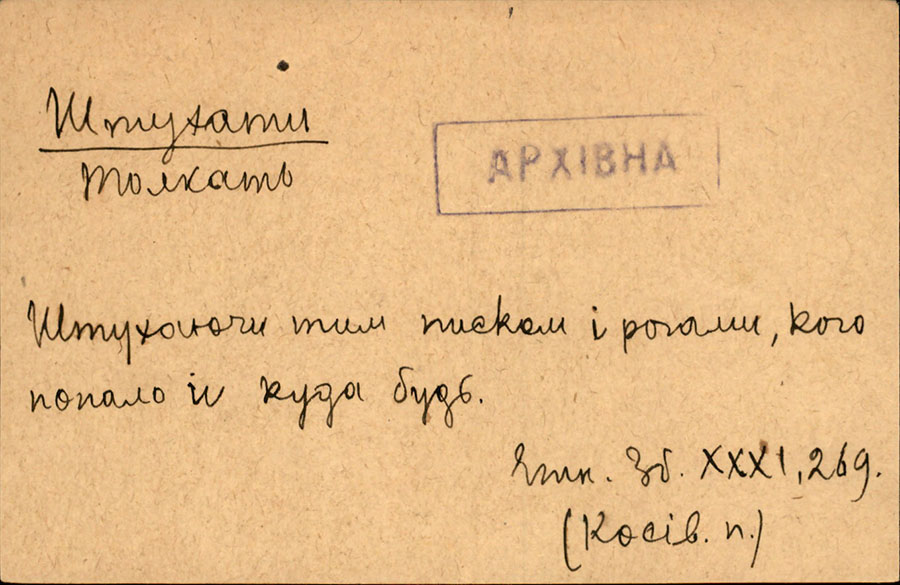 Штухати
АРХІВНА
толкать
Штухаючи тим писком і рогами, кого
попало й куда будь.
Етн. Зб. XXXI, 269.
(Косів. п.)